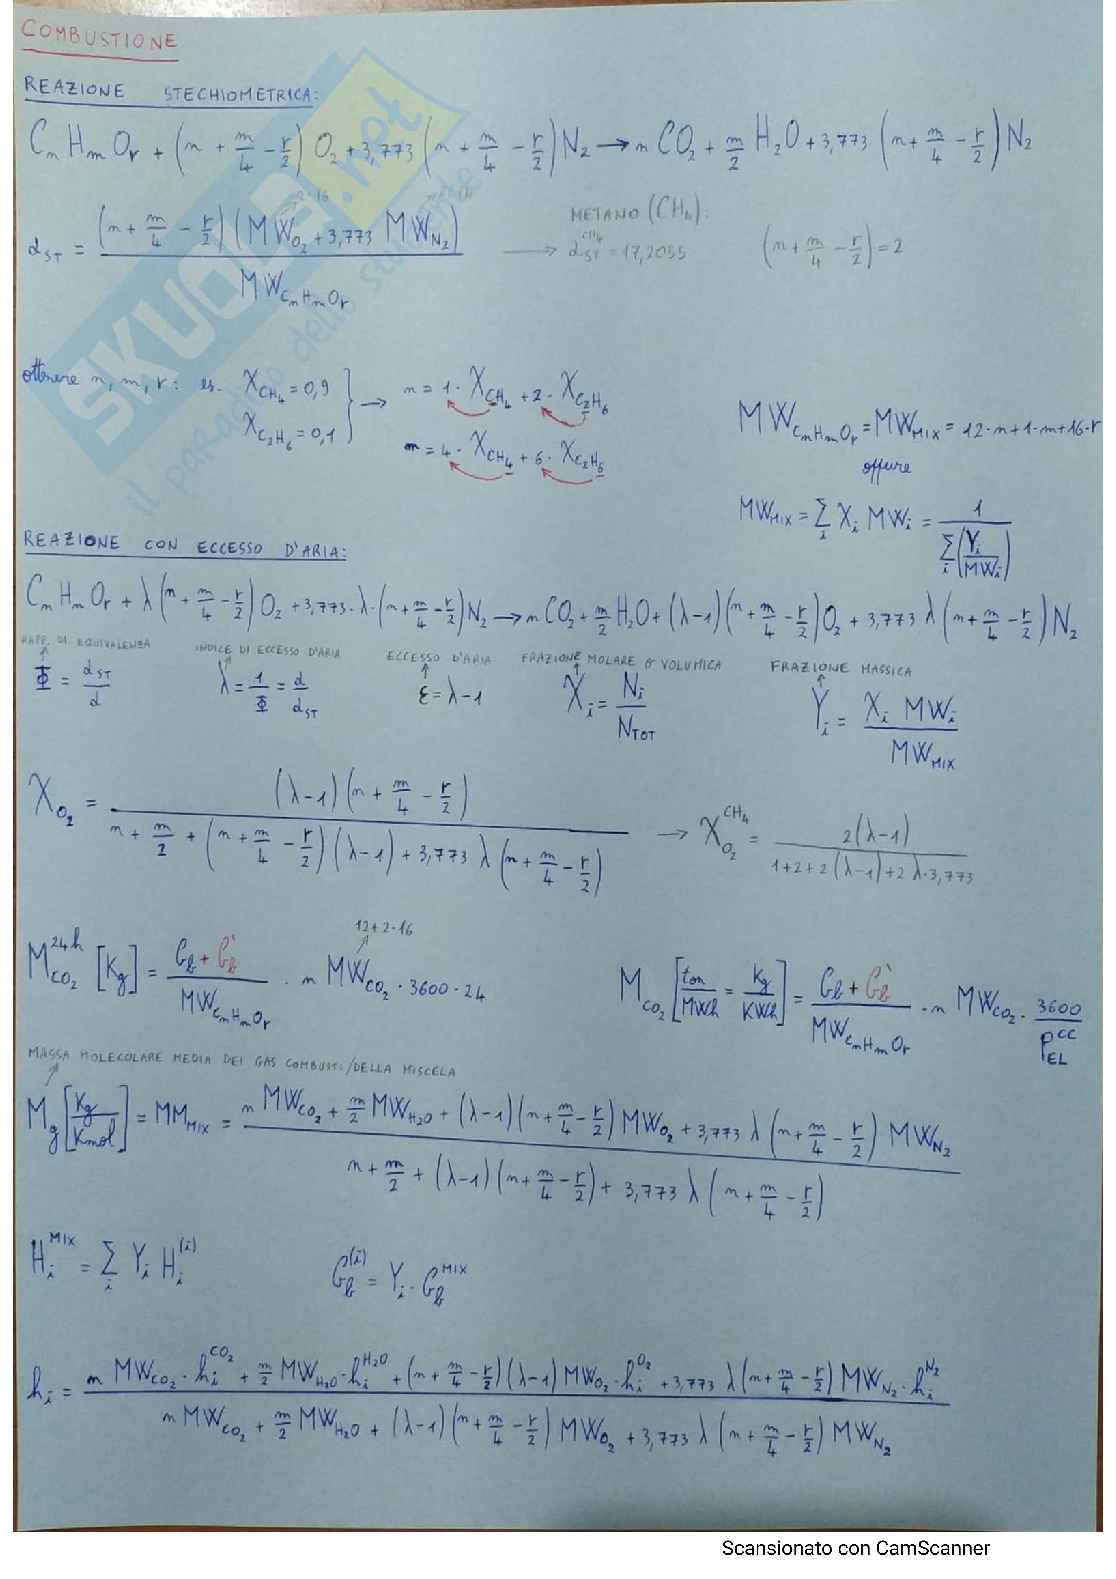 COMBUSTIONE
REAZIONE STECHIOMETRICA:
CnHmOr + (n + m/4 - r/2) O2 + 3,773 (n + m/4 - r/2) N2 → n CO2 + m/2 H2O + 3,773 (n + m/4 - r/2) N2
αST = (n + m/4 - r/2) (MWO2 + 3,773 MWN2) / MWCnHmOr
2·16
METANO (CH4):
→ αST^CH4 = 17,2055 (n + m/4 - r/2) = 2
ottenere n, m, r: es. XCH4 = 0,9 XC2H6 = 0,1 } → n = 1· XCH4 + 2· XC2H6
m = 4· XCH4 + 6· XC2H6
MWCnHmOr = MWMIX = 12·n + 1·m + 16·r
oppure
MWMIX = ∑i Xi MWi = 1 / ∑i (Yi/MWi)
REAZIONE CON ECCESSO D'ARIA:
CnHmOr + λ (n + m/4 - r/2) O2 + 3,773·λ·(n + m/4 - r/2) N2 → n CO2 + m/2 H2O + (λ-1)(n + m/4 - r/2) O2 + 3,773 λ (n + m/4 - r/2) N2
RAPP. DI EQUIVALENZA INDICE DI ECCESSO D'ARIA ECCESSO D'ARIA FRAZIONE MOLARE O VOLUMICA FRAZIONE MASSICA
Φ = αST/α λ = 1/Φ = α/αST ε = λ-1 Xi = Ni/NTOT Yi = Xi MWi / MWMIX
XO2 = (λ-1)(n + m/4 - r/2) / n + m/2 + (n + m/4 - r/2)(λ-1) + 3,773 λ (n + m/4 - r/2) → XO2^CH4 = 2(λ-1) / 1+2+2(λ-1)+2λ·3,773
12+2·16
MCO2^24h [Kg] = Gb + Gb' / MWCnHmOr · n MWCO2 · 3600·24
MCO2 [ton/MWh = Kg/KWh] = Gb + Gb' / MWCnHmOr · n MWCO2 · 3600/PEL^CC
MASSA MOLECOLARE MEDIA DEI GAS COMBUSTI/DELLA MISCELA
Mg [Kg/Kmol] = MMMIX = n MWCO2 + m/2 MWH2O + (λ-1)(n + m/4 - r/2) MWO2 + 3,773 λ (n + m/4 - r/2) MWN2 / n + m/2 + (λ-1)(n + m/4 - r/2) + 3,773 λ (n + m/4 - r/2)
Hi^MIX = ∑i Yi Hi^(i) Gb^(i) = Yi · Gb^MIX
hi = n MWCO2 · hi^CO2 + m/2 MWH2O · hi^H2O + (n + m/4 - r/2)(λ-1) MWO2 · hi^O2 + 3,773 λ (n + m/4 - r/2) MWN2 · hi^N2 / n MWCO2 + m/2 MWH2O + (λ-1)(n + m/4 - r/2) MWO2 + 3,773 λ (n + m/4 - r/2) MWN2
SKUOLA.net
il paradiso dello studente
Scansionato con CamScanner